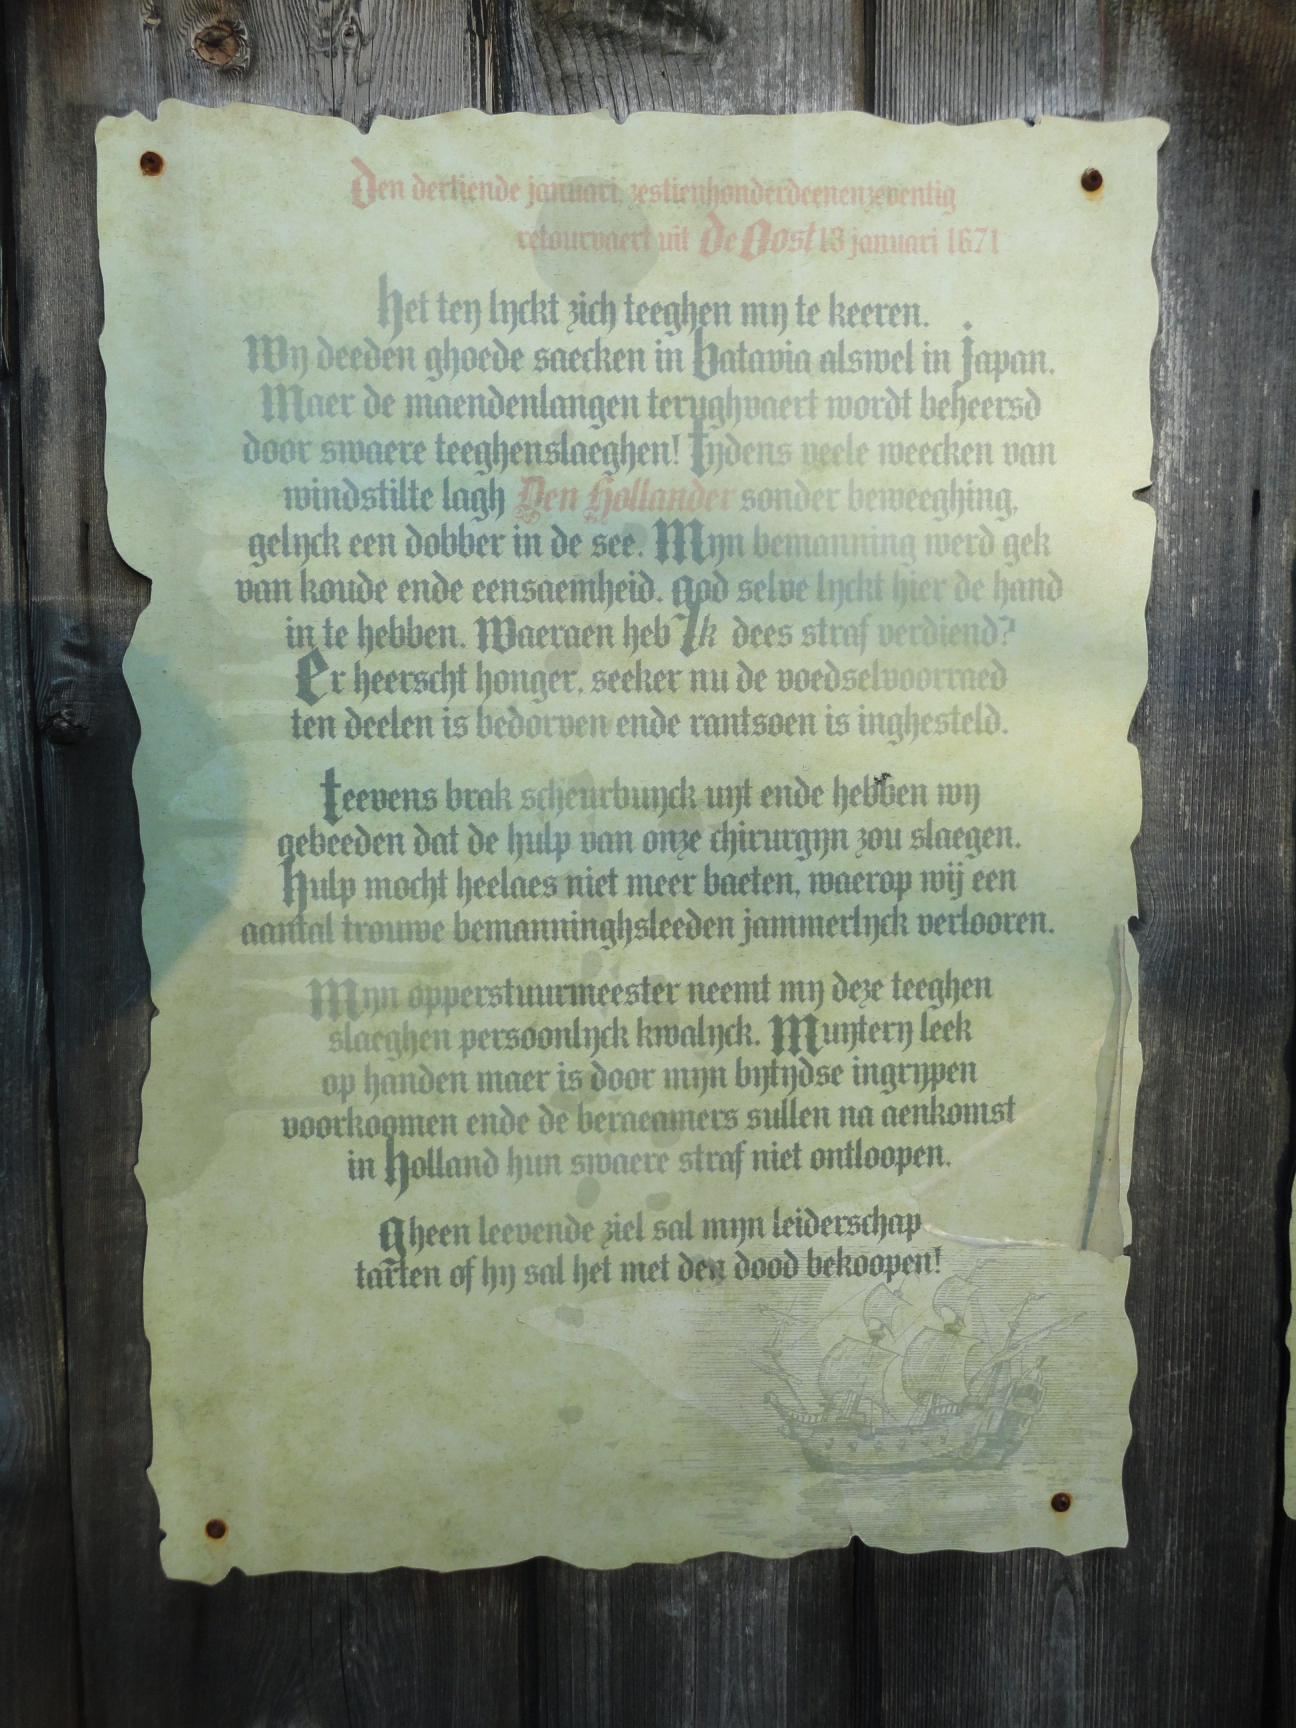 Den dertiende januari, zestienhonderdeenenzeventig
retourvaert uit De Oost 13 januari 1671
Het tey lyckt zich teeghen my te keeren.
Wy deeden ghoede saecken in Batavia alswel in Japan.
Maer de maendenlangen terughvaert wordt beheersd
door swaere teeghenslaeghen! Tydens veele weecken van
windstilte lagh Den Hollander sonder beweeghing,
gelyck een dobber in de see. Myn bemanning werd gek
van koude ende eensaemheid. God selve lyckt hier de hand
in te hebben. Waeraen heb Ik dees straf verdiend?
Er heerscht honger, seeker nu de voedselvoorraed
ten deelen is bedorven ende rantsoen is inghesteld.
Teevens brak scheurbuyck uyt ende hebben wy
gebeeden dat de hulp van onze chirurgyn zou slaegen.
Hulp mocht heelaes niet meer baeten, waerop wij een
aantal trouwe bemanninghsleeden jammerlyck verlooren.
Myn opperstuurmeester neemt my deze teeghen
slaeghen persoonlyck kwalyck. Muytery leek
op handen maer is door myn bytydse ingrypen
voorkoomen ende de beraeamers sullen na aenkomst
in Holland hun swaere straf niet ontloopen.
Gheen leevende ziel sal myn leiderschap
tarten of hy sal het met den dood bekoopen!